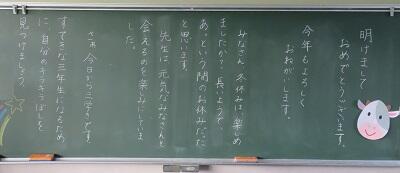 明けまして
おめでとうございます。
今年もよろしく
おねがいします。
みなさん、冬休みは楽しめ
ましたか？長いようで、
あっという間のお休みだった
と思います。
先生は元気なみなさんと
会えるのを楽しみにしていま
した。
さあ、今日から三学きです。
すてきな三年生になるため
に、自分のキラキラぼしを
見つけましょう。